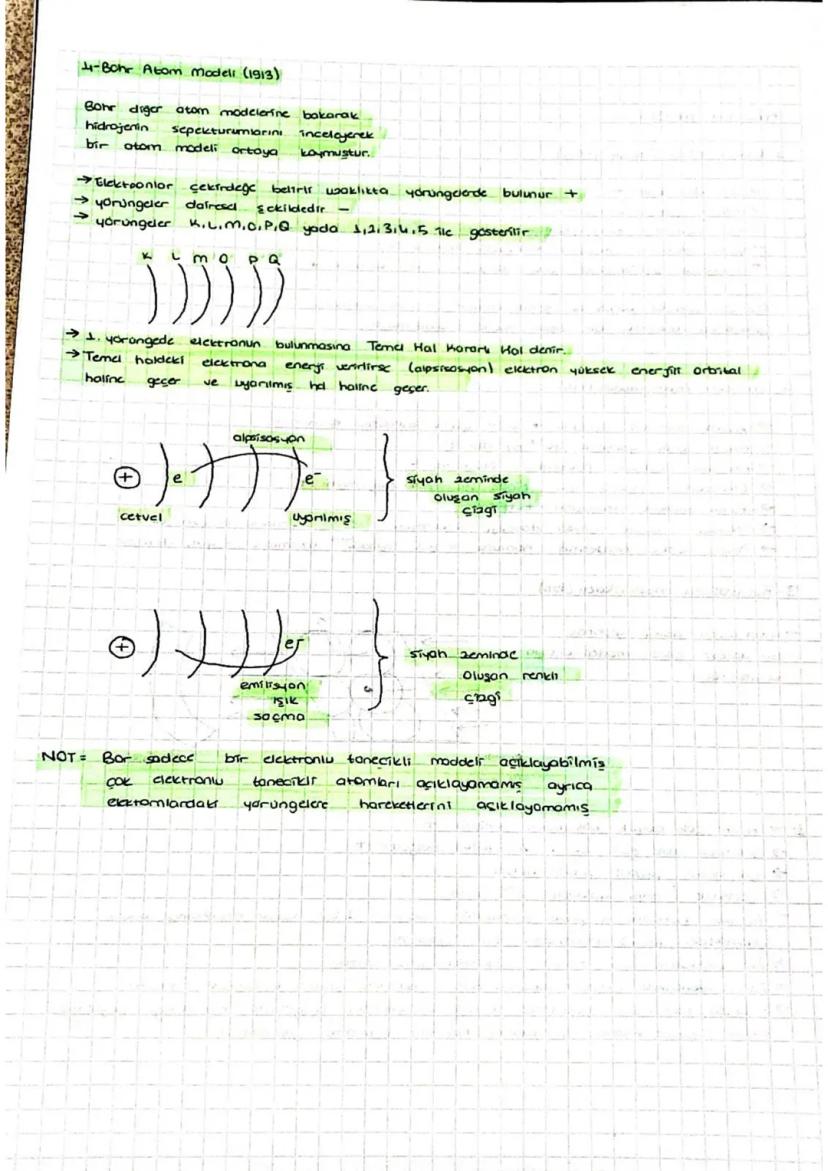 4-Bohr Atom Modeli (1913)
Bohr diğer atom modellerine bakarak
hidrojenin sepekturumlarını inceleyerek
bir atom modeli ortaya koymuştur.
→ Elektronlar çekirdeğe belirli uzaklıkta yörüngelerde bulunur +
→ yörüngeler dairesel şekildedir -
→ yörüngeler K,L,M,O,P,Q yada 1,2,3,4,5 ile gösterilir
K L M O P Q
→ 1. yörüngede elektronun bulunmasına Temel Hal Kararlı Hal denir.
→ Temel haldeki elektrona enerji verilirse (alpsisosyon) elektron yüksek enerjili orbital
haline geçer ve uyarılmış hal haline geçer.
alpsisosyon
+ e e-
siyah zeminde
oluşan siyah
çizgi
cetvel uyarılmış
+ e-
siyah zeminde
oluşan renkli
çizgi
emilisyon
ışık
saçma
NOT = Bor sadece bir elektronlu tanecikli maddeli açıklayabilmiş
çok elektronlu tanecikli atomları açıklayamamış ayrıca
elektromlardaki yörüngelere hareketlerini açıklayamamış